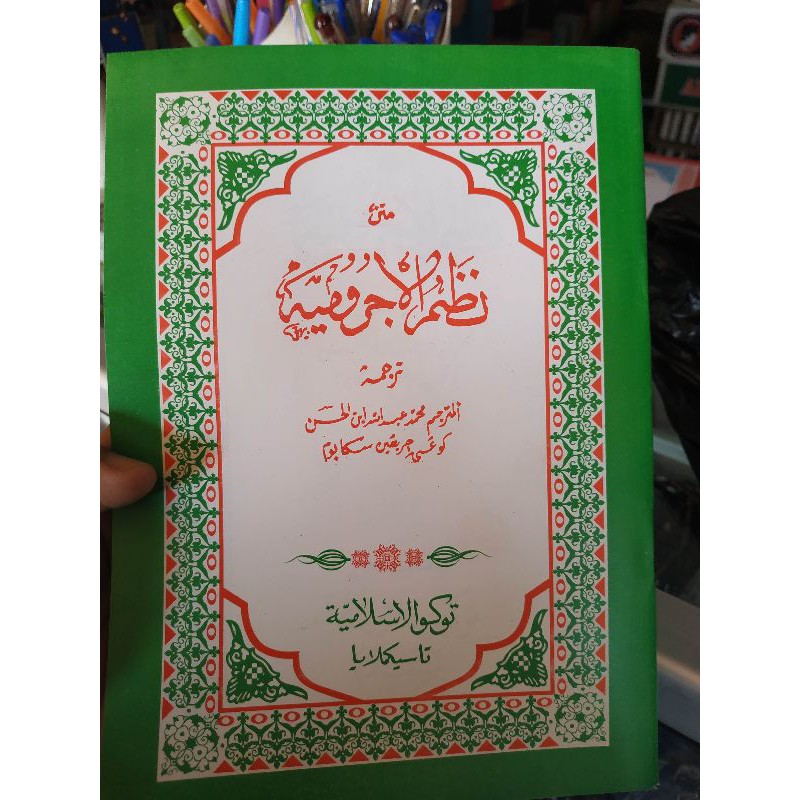 متن
نظم الاجرومية
ترجمة
المترجم محمد عبد الله ابن الحسن
سكابوم
توكو الاسلامية
تاسيكملايا